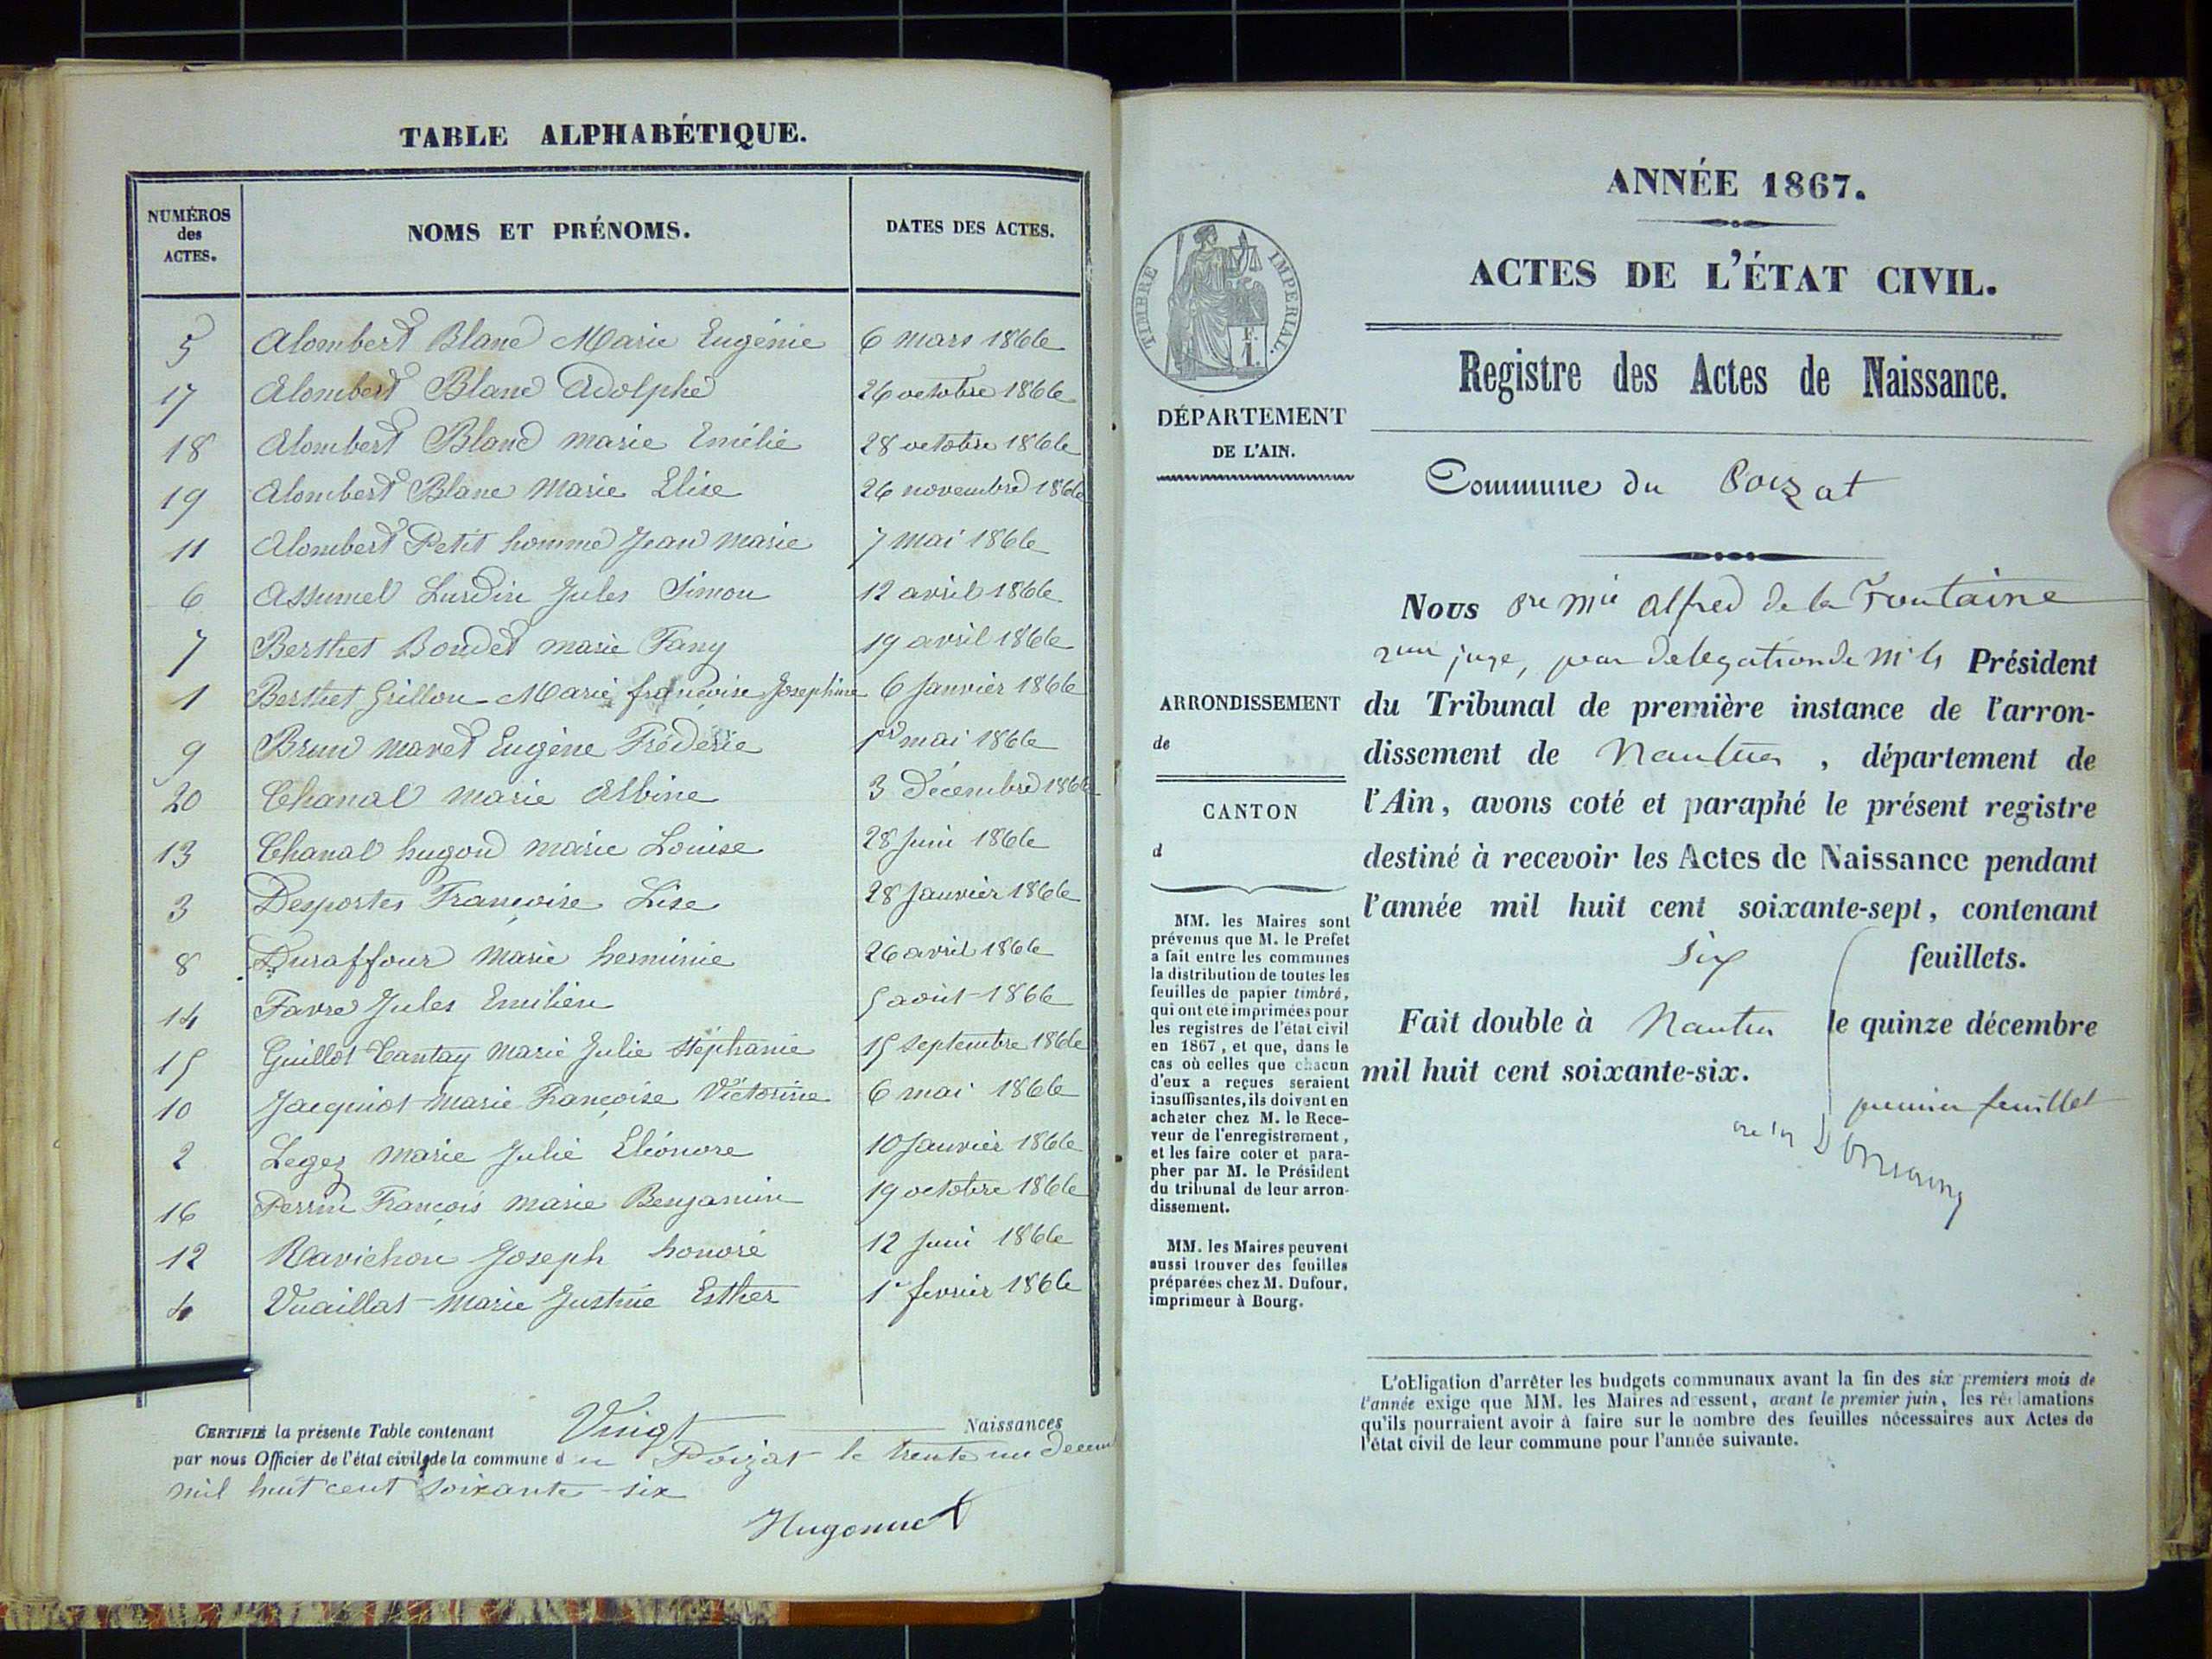 TABLE ALPHABÉTIQUE.
NUMÉROS des ACTES. NOMS ET PRÉNOMS. DATES DES ACTES.
5 Alombert Blanc Marie Eugénie 6 mars 1866
17 Alombert Blanc Adolphe 26 octobre 1866
18 Alombert Blanc Marie Emélie 28 octobre 1866
19 Alombert Blanc Marie Elise 26 novembre 1866
11 Alombert Petit homme Jean Marie 7 mai 1866
6 Assumel Lurdin Jules Simon 12 avril 1866
7 Berthet Bondet marie Fany 19 avril 1866
1 Berthet Grillon Marie françoise Josephine 6 Janvier 1866
9 Brun mavet Eugène Fréderic 1er mai 1866
20 Chanal marie Albine 3 Décembre 1866
13 Chanal hugon marie Louise 28 Juin 1866
3 Desportes Françoise Lise 28 Janvier 1866
8 Duraffour Marie herminie 26 avril 1866
14 Favre Jules Emilien 5 août 1866
15 Guillot Cantay Marie Julie Stéphanie 15 septembre 1866
10 Jacquiot Marie Françoise Victorine 6 mai 1866
2 Legez marie Julie Eléonore 10 Janvier 1866
16 Perrin François marie Benjamin 19 octobre 1866
12 Ravichon Joseph honoré 12 Juin 1866
4 Vuaillat Marie Justine Esther 1r fevrier 1866
CERTIFIÉ la présente Table contenant Vingt Naissances
par nous Officier de l'état civil de la commune du Poizat le trente un Décem
mil huit cent soixante-six
Hugonnet
ANNÉE 1867.
ACTES DE L'ÉTAT CIVIL.
TIMBRE IMPERIAL.
1 F.
Registre des Actes de Naissance.
DÉPARTEMENT
DE L'AIN.
Commune du Poizat
Nous Alfred de la Fontaine
juge, par delegation de Mr le Président
du Tribunal de première instance de l'arron-
dissement de Nantua , département de
l'Ain, avons coté et paraphé le présent registre
destiné à recevoir les Actes de Naissance pendant
l'année mil huit cent soixante-sept, contenant
six feuillets.
Fait double à Nantua le quinze décembre
mil huit cent soixante-six.
premier feuillet
ARRONDISSEMENT
de
CANTON
d
MM. les Maires sont
prévenus que M. le Préfet
a fait entre les communes
la distribution de toutes les
feuilles de papier timbré,
qui ont été imprimées pour
les registres de l'état civil
en 1867, et que, dans le
cas où celles que chacun
d'eux a reçues seraient
insuffisantes, ils doivent en
acheter chez M. le Rece-
veur de l'enregistrement,
et les faire coter et para-
pher par M. le Président
du tribunal de leur arron-
dissement.
MM. les Maires peuvent
aussi trouver des feuilles
préparées chez M. Dufour,
imprimeur à Bourg.
L'obligation d'arrêter les budgets communaux avant la fin des six premiers mois de
l'année exige que MM. les Maires adressent, avant le premier juin, les réclamations
qu'ils pourraient avoir à faire sur le nombre des feuilles nécessaires aux Actes de
l'état civil de leur commune pour l'année suivante.